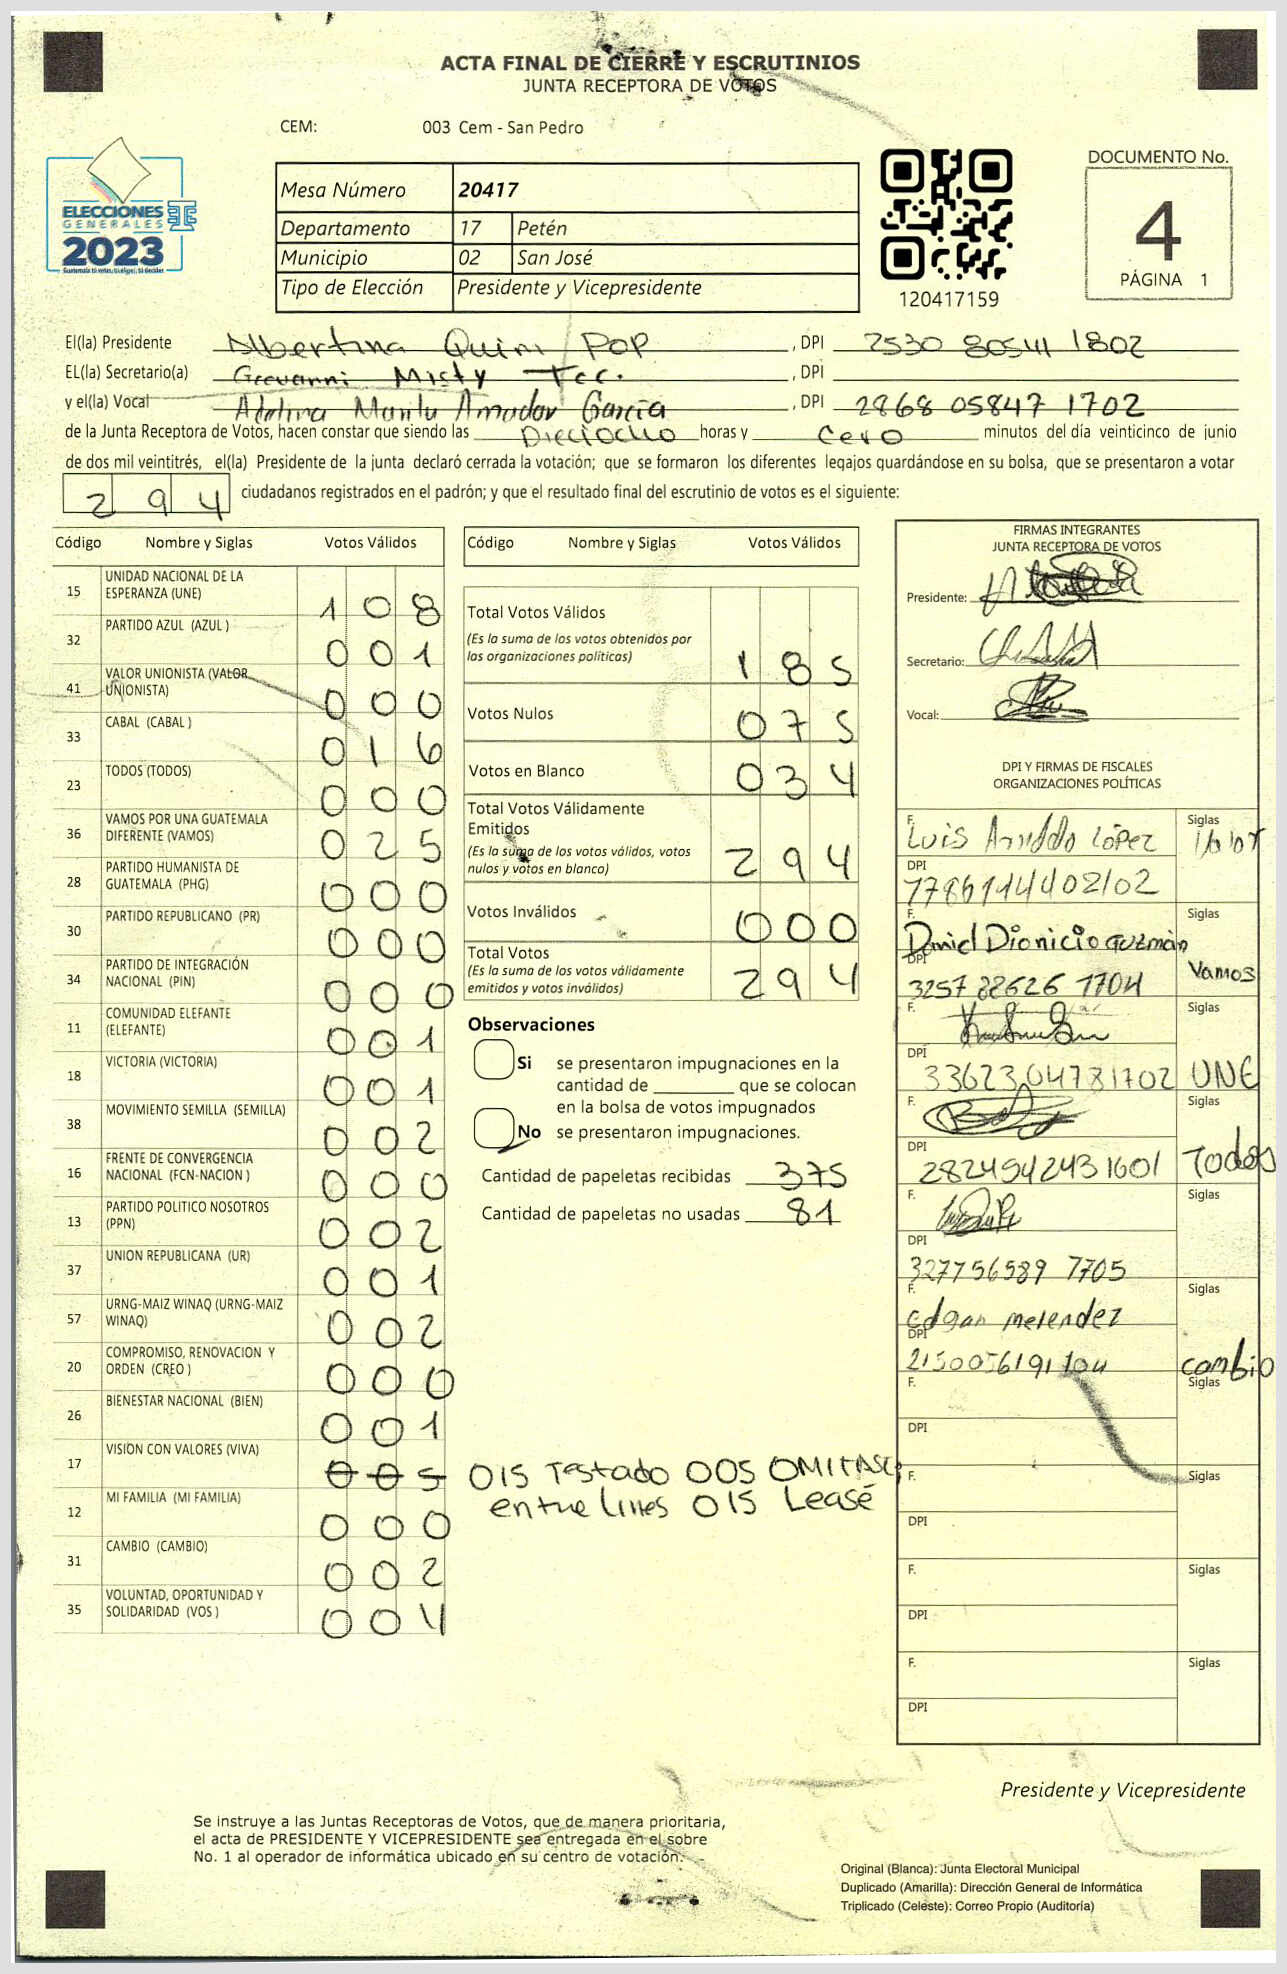 ACTA FINAL DE CIERRE Y ESCRUTINIOS
JUNTA RECEPTORA DE VOTOS
CEM: 003 Cem - San Pedro
ELECCIONES
GENERALES
2023
Mesa Número 20417
Departamento 17 Petén
Municipio 02 San José
Tipo de Elección Presidente y Vicepresidente
120417159
DOCUMENTO No.
4
PÁGINA 1
El(la) Presidente Albertina Quim Pop , DPI 2530 80541 1802
EL(la) Secretario(a) Geovanni Misty Tec. , DPI
y el(la) Vocal Adelina Marilu Amador García , DPI 2868 05847 1702
de la Junta Receptora de Votos, hacen constar que siendo las Dieciocho horas y cero minutos del día veinticinco de junio
de dos mil veintitrés, el(la) Presidente de la junta declaró cerrada la votación; que se formaron los diferentes legajos guardándose en su bolsa, que se presentaron a votar
294 ciudadanos registrados en el padrón; y que el resultado final del escrutinio de votos es el siguiente:
Código Nombre y Siglas Votos Válidos
15 UNIDAD NACIONAL DE LA ESPERANZA (UNE) 108
32 PARTIDO AZUL (AZUL ) 001
41 VALOR UNIONISTA (VALOR UNIONISTA) 000
33 CABAL (CABAL ) 016
23 TODOS (TODOS) 000
36 VAMOS POR UNA GUATEMALA DIFERENTE (VAMOS) 025
28 PARTIDO HUMANISTA DE GUATEMALA (PHG) 000
30 PARTIDO REPUBLICANO (PR) 000
34 PARTIDO DE INTEGRACIÓN NACIONAL (PIN) 000
11 COMUNIDAD ELEFANTE (ELEFANTE) 001
18 VICTORIA (VICTORIA) 001
38 MOVIMIENTO SEMILLA (SEMILLA) 002
16 FRENTE DE CONVERGENCIA NACIONAL (FCN-NACION ) 000
13 PARTIDO POLITICO NOSOTROS (PPN) 002
37 UNION REPUBLICANA (UR) 001
57 URNG-MAIZ WINAQ (URNG-MAIZ WINAQ) 002
20 COMPROMISO, RENOVACION Y ORDEN (CREO ) 000
26 BIENESTAR NACIONAL (BIEN) 001
17 VISION CON VALORES (VIVA) 005 015 Testado 005 OMITASE
entre lines 015 Leasé
12 MI FAMILIA (MI FAMILIA) 000
31 CAMBIO (CAMBIO) 002
35 VOLUNTAD, OPORTUNIDAD Y SOLIDARIDAD (VOS ) 004
Código Nombre y Siglas Votos Válidos
Total Votos Válidos
(Es la suma de los votos obtenidos por
las organizaciones políticas) 185
Votos Nulos 075
Votos en Blanco 034
Total Votos Válidamente
Emitidos
(Es la suma de los votos válidos, votos
nulos y votos en blanco) 294
Votos Inválidos 000
Total Votos
(Es la suma de los votos válidamente
emitidos y votos inválidos) 294
Observaciones
Si se presentaron impugnaciones en la
cantidad de ________ que se colocan
en la bolsa de votos impugnados
No se presentaron impugnaciones.
Cantidad de papeletas recibidas 375
Cantidad de papeletas no usadas 81
FIRMAS INTEGRANTES
JUNTA RECEPTORA DE VOTOS
Presidente:
Secretario:
Vocal:
DPI Y FIRMAS DE FISCALES
ORGANIZACIONES POLÍTICAS
F. Luis López Siglas Valor
DPI
F. Daniel Dionicio Guzmán Siglas
DPI 3257 22626 1704 Vamos
F. Siglas
DPI 33623 04781702 UNE
F. Siglas
DPI 2824942431601 Todos
F. Siglas
DPI 327756589 7705
F. Edgan melendez Siglas
DPI cambio
F. Siglas
DPI
F. Siglas
DPI
F. Siglas
DPI
F. Siglas
DPI
Presidente y Vicepresidente
Se instruye a las Juntas Receptoras de Votos, que de manera prioritaria,
el acta de PRESIDENTE Y VICEPRESIDENTE sea entregada en el sobre
No. 1 al operador de informática ubicado en su centro de votación.
Original (Blanca): Junta Electoral Municipal
Duplicado (Amarilla): Dirección General de Informática
Triplicado (Celeste): Correo Propio (Auditoría)